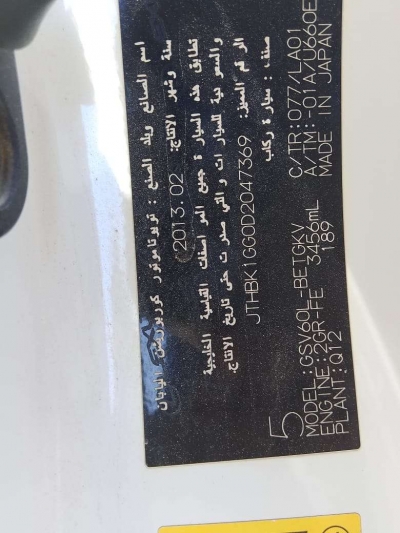 اسم الصانع وبلد الصنع : تويوتا موتور كوربوريشن اليابان
سنة وشهر الانتاج: 2013.02
تطابق هذه السيارة جميع المواصفات القياسية الخليجية
والسعودية للسيارات والتي صدرت حتى تاريخ الانتاج.
الرقم المميز: JTHBK1GG0D2047369
صنف : سيارة ركاب
5
MODEL:GSV60L-BETGKV
ENGINE:2GR-FE 3456mL
PLANT:Q12 189
C/TR:077/LA01
A/TM:-01A/U660E
MADE IN JAPAN